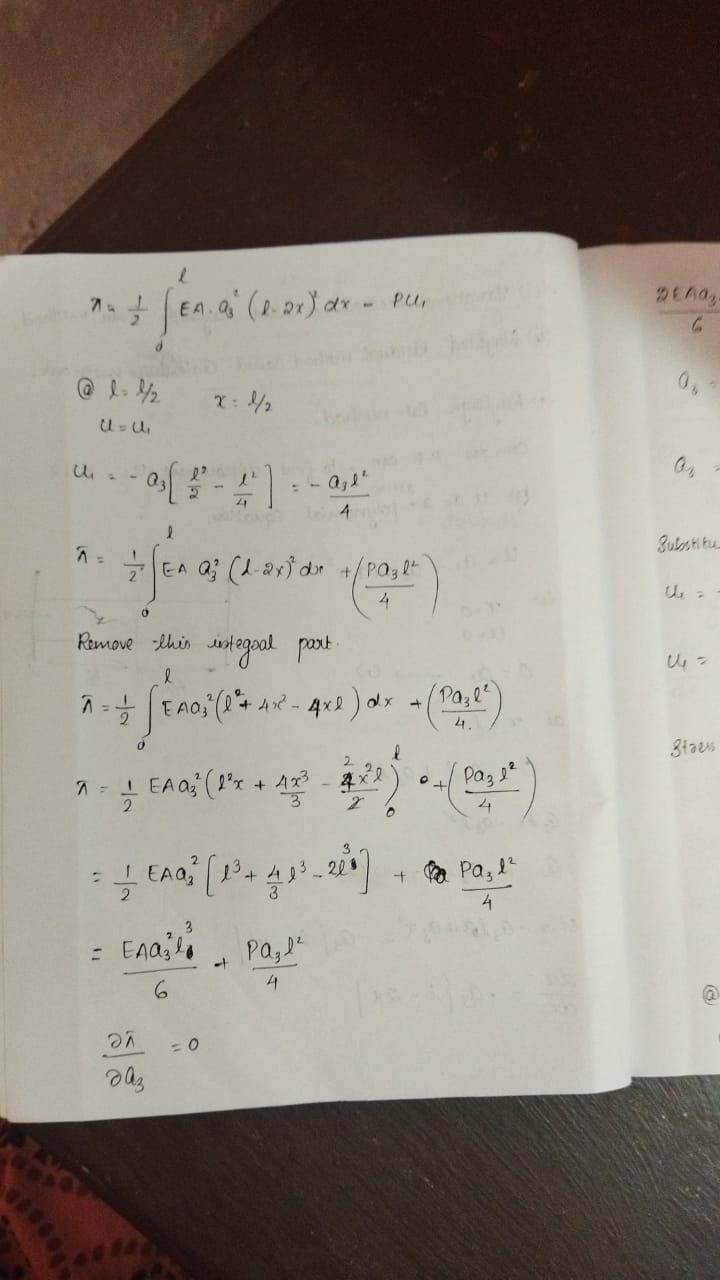 π = 1/2 ∫₀^l EA·a₃² (l-2x)² dx - PU₁
@ l = l/2    x = l/2
U = U₁
U₁ = - a₃[l²/2 - l²/4] = - a₃l²/4
π = 1/2 ∫₀^l EA a₃² (l-2x)² dx + (Pa₃l²/4)
Remove this integral part.
π = 1/2 ∫₀^l EAa₃² (l² + 4x² - 4xl) dx + (Pa₃l²/4)
π = 1/2 EAa₃² (l²x + 4x³/3 - 4x²l/2)₀^l + (Pa₃l²/4)
= 1/2 EAa₃² [l³ + 4/3 l³ - 2l³] + Pa₃l²/4
= EAa₃²l³/6 + Pa₃l²/4
∂π/∂a₃ = 0
2EAa₃
6
a₃ =
a₃ =
Substitu
U₁ =
U₁ =
Stress
@